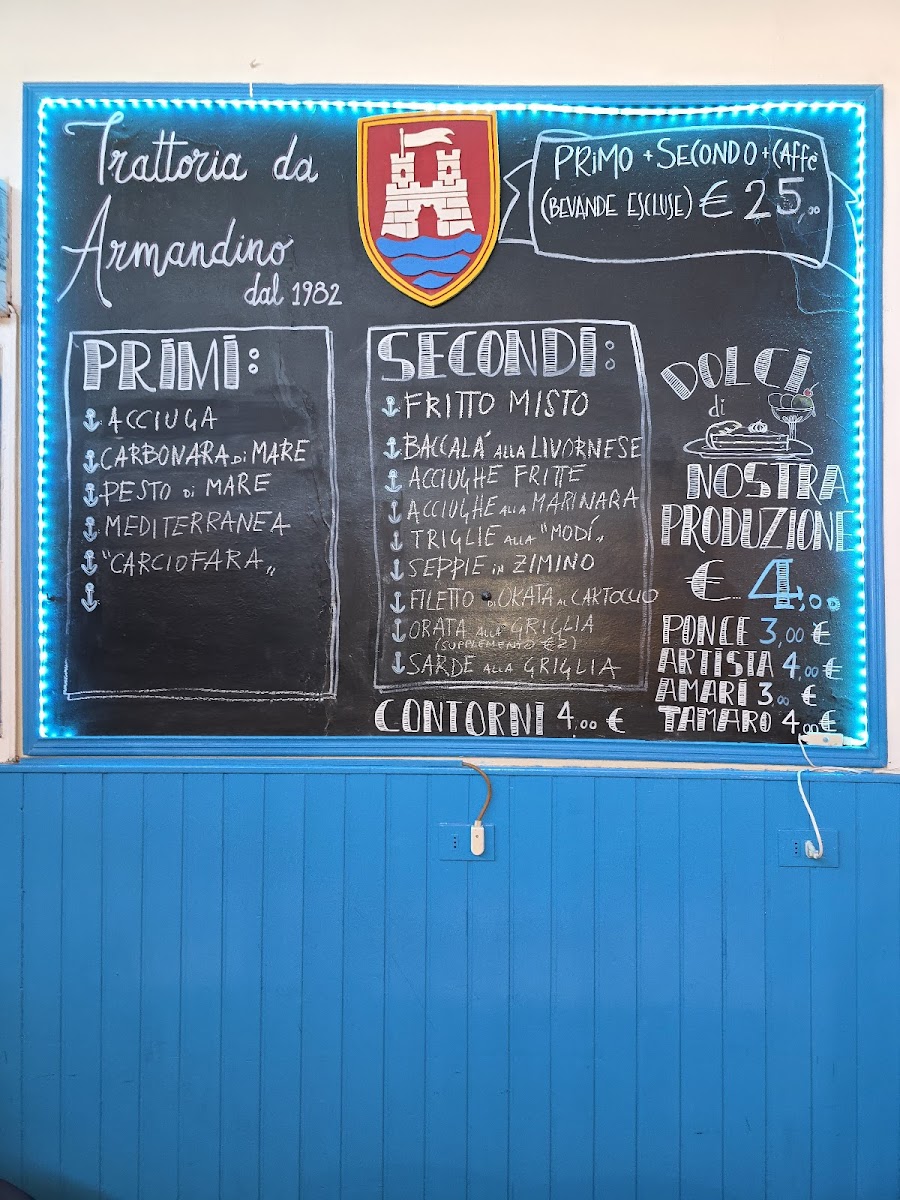 Trattoria da
Armandino
dal 1982
PRIMO + SECONDO + CAFFÈ
(BEVANDE ESCLUSE) € 25,00
PRIMI:
ACCIUGA
CARBONARA DI MARE
PESTO DI MARE
MEDITERRANEA
"CARCIOFARA"
SECONDI:
FRITTO MISTO
BACCALA' ALLA LIVORNESE
ACCIUGHE FRITTE
ACCIUGHE ALLA MARINARA
TRIGLIE ALLA "MODÍ"
SEPPIE IN ZIMINO
FILETTO DI ORATA AL CARTOCCIO
ORATA ALLA GRIGLIA
(SUPPLEMENTO €2)
SARDE ALLA GRIGLIA
CONTORNI 4,00 €
DOLCI
di
NOSTRA
PRODUZIONE
€ 4,00
PONCE 3,00 €
ARTISTA 4,00 €
AMARI 3,00 €
TAMARO 4,00 €